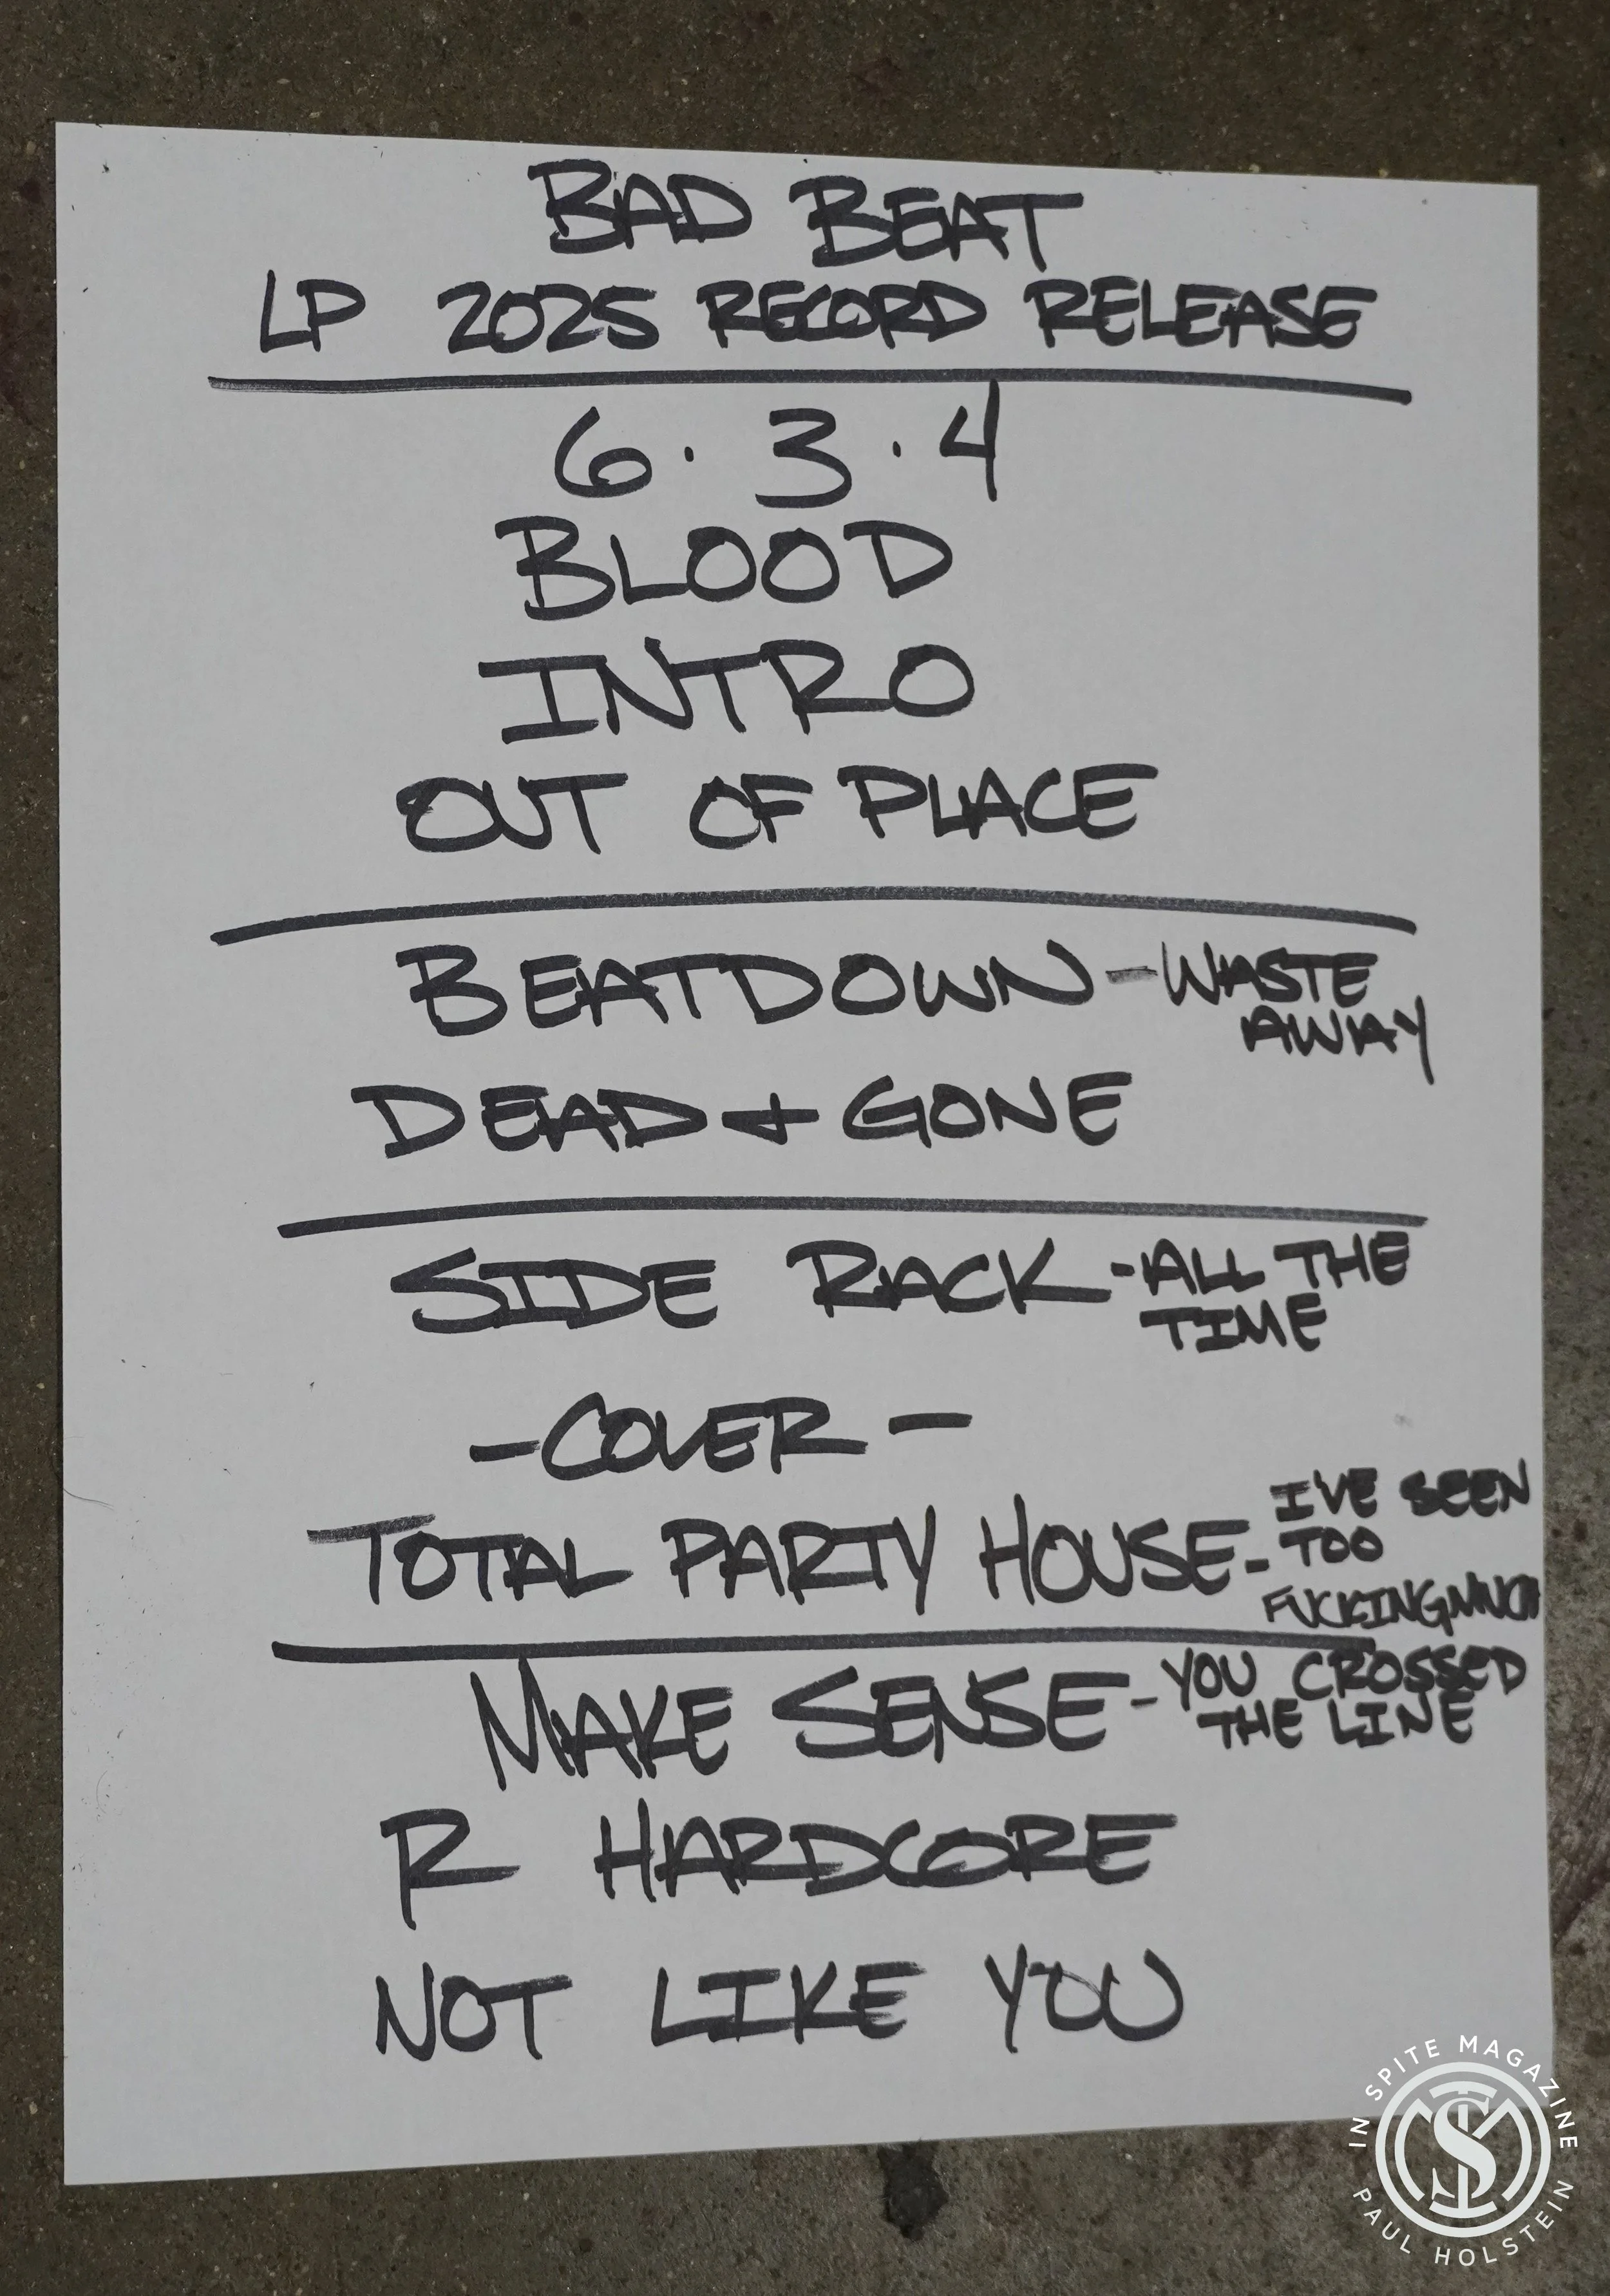 BAD BEAT
LP 2025 RECORD RELEASE
6 · 3 · 4
BLOOD
INTRO
OUT OF PLACE
BEATDOWN - WASTE
AWAY
DEAD + GONE
SIDE RACK - ALL THE
TIME
- COVER -
TOTAL PARTY HOUSE - I'VE SEEN
TOO
FUCKING MUCH
MAKE SENSE - YOU CROSSED
THE LINE
R HARDCORE
NOT LIKE YOU
IN SPITE MAGAZINE
ISM
PAUL HOLSTEIN